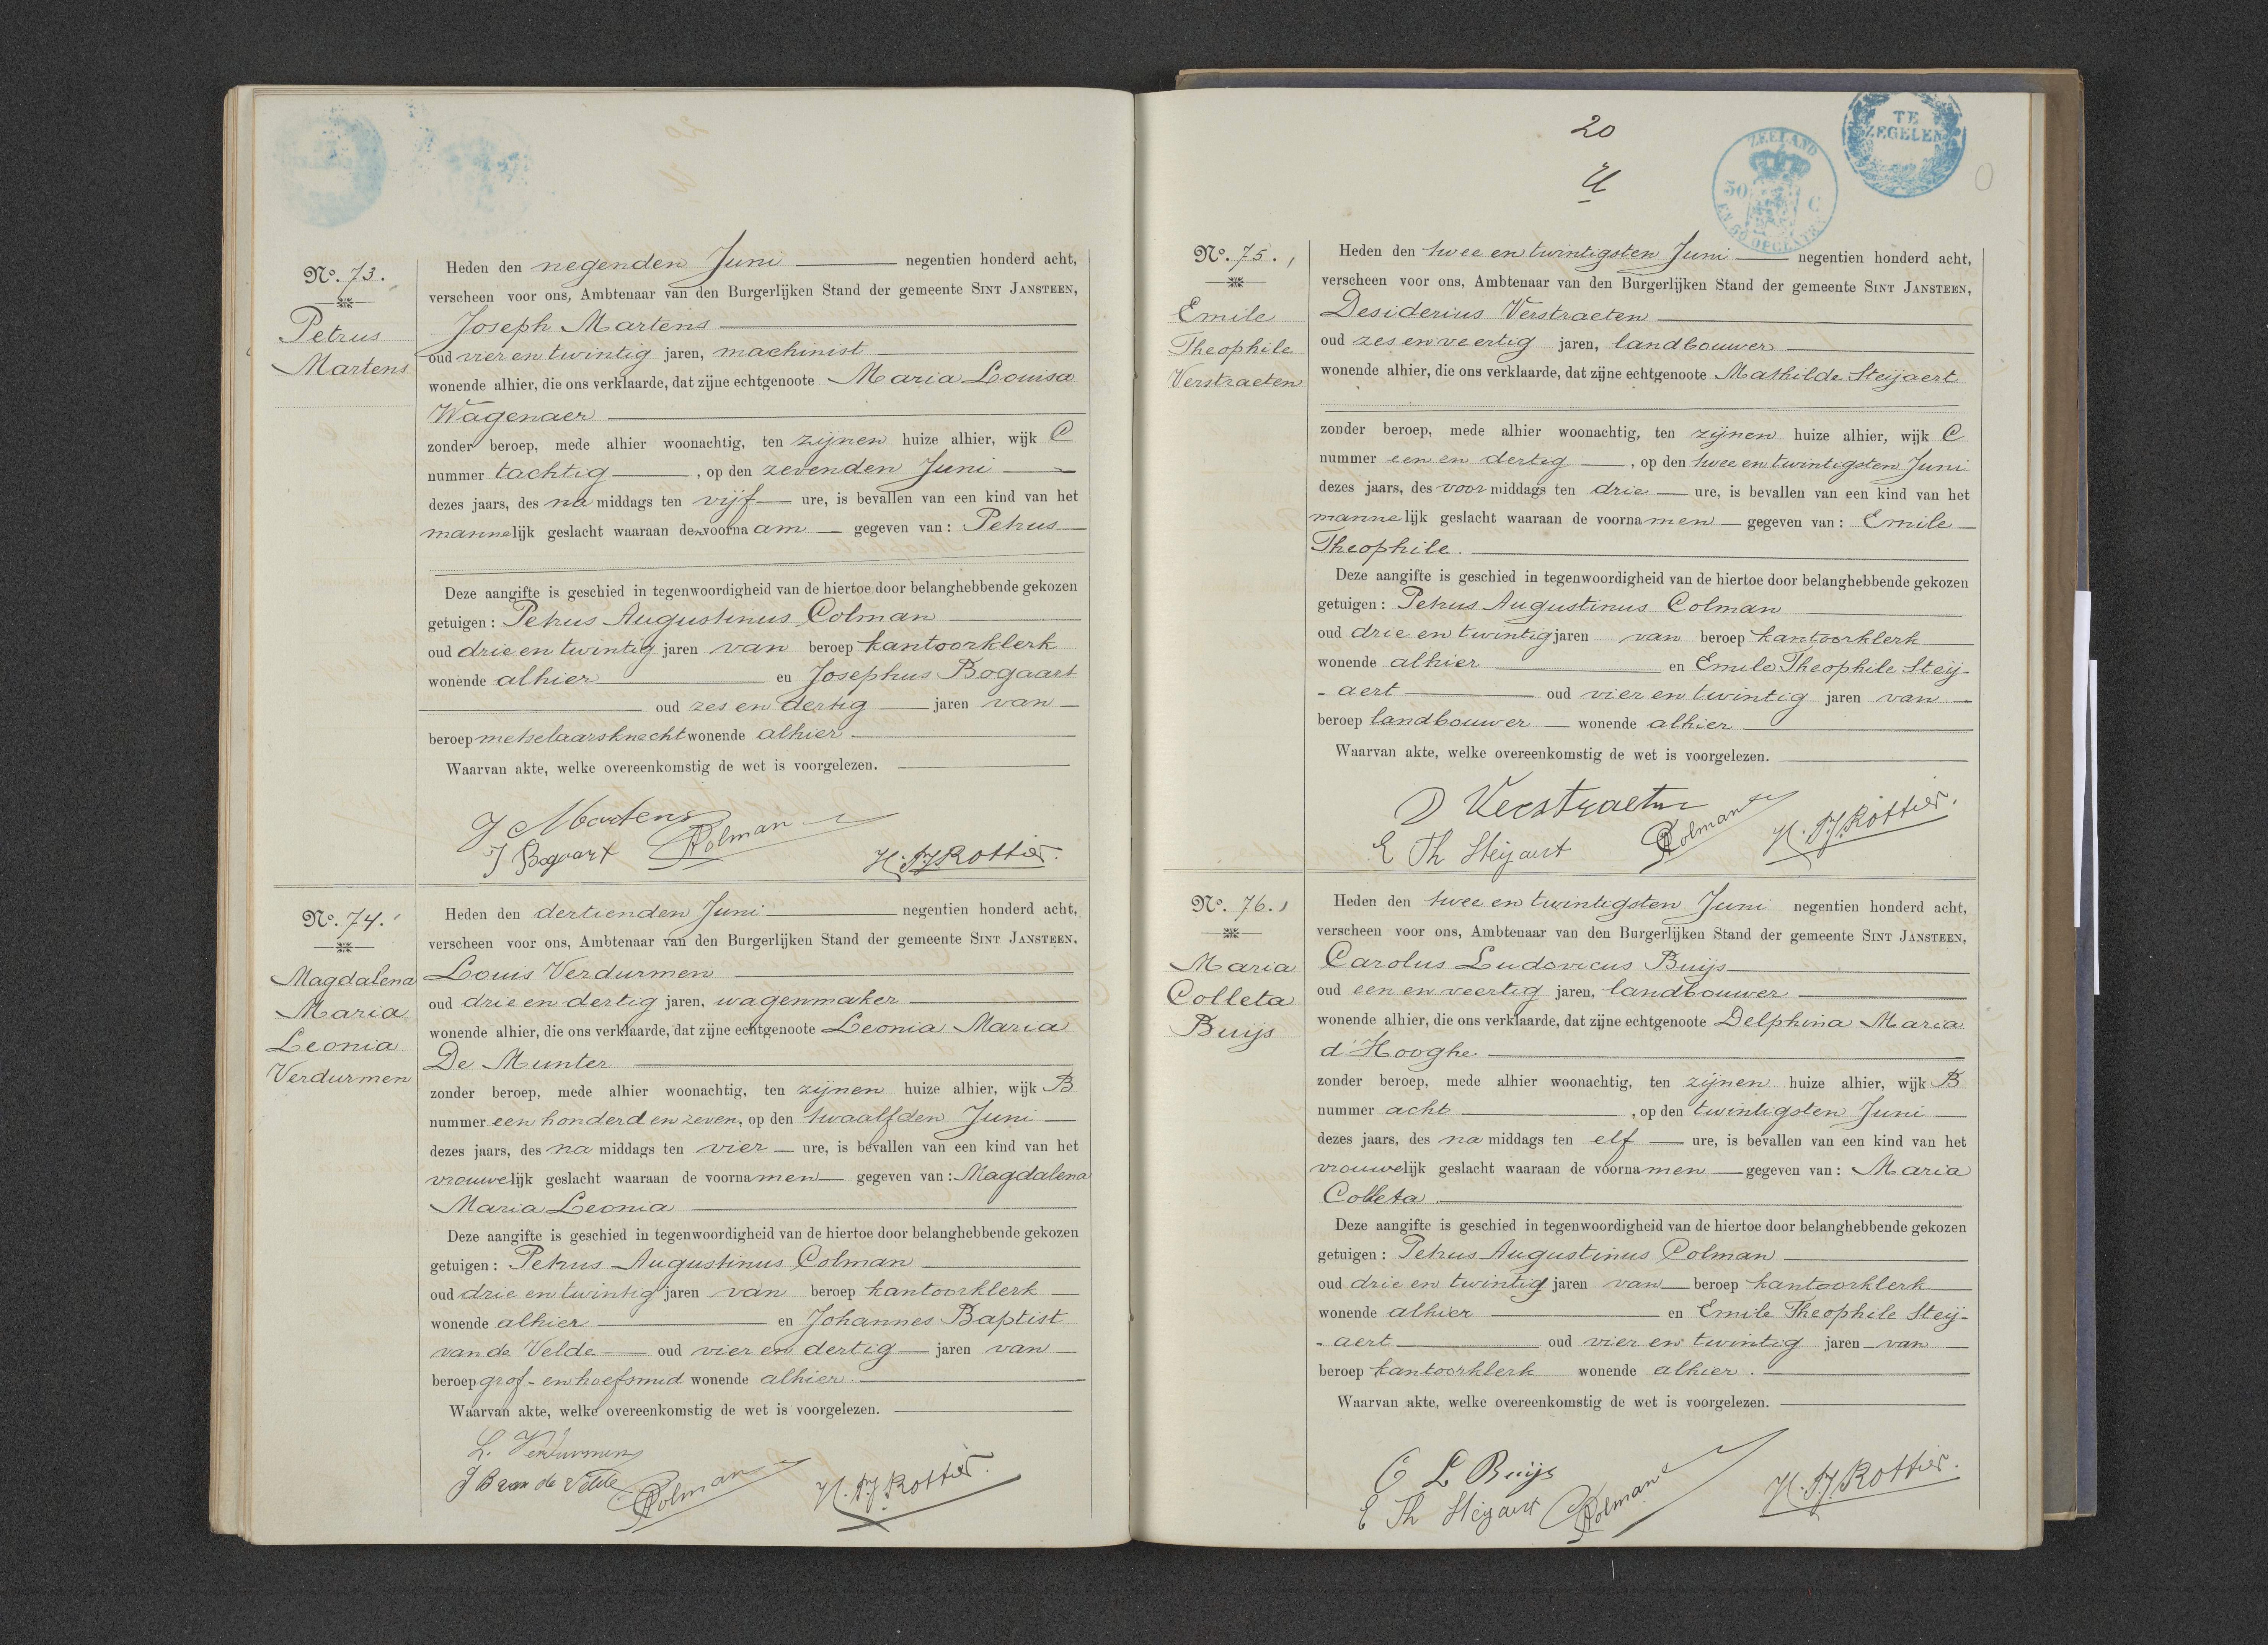 Nº. 73.
Petrus
Martens
Heden den negenden Juni negentien honderd acht,
verscheen voor ons, Ambtenaar van den Burgerlijken Stand der gemeente SINT JANSTEEN,
Joseph Martens
oud vier en twintig jaren, machinist
wonende alhier, die ons verklaarde, dat zijne echtgenoote Maria Louisa
Wagenaer
zonder beroep, mede alhier woonachtig, ten zijnen huize alhier, wijk C
nummer tachtig, op den zevenden Juni
dezes jaars, des na middags ten vijf ure, is bevallen van een kind van het
mannelijk geslacht waaraan den voornaam gegeven van: Petrus
Deze aangifte is geschied in tegenwoordigheid van de hiertoe door belanghebbende gekozen
getuigen: Petrus Augustinus Colman
oud drie en twintig jaren van beroep kantoorklerk
wonende alhier en Josephus Bogaart
oud zes en dertig jaren van
beroep metselaarsknecht wonende alhier
Waarvan akte, welke overeenkomstig de wet is voorgelezen.
J Martens
J Bogaart Colman
H.P.J. Rottier.
Nº. 74.
Magdalena
Maria
Leonia
Verdurmen
Heden den dertienden Juni negentien honderd acht,
verscheen voor ons, Ambtenaar van den Burgerlijken Stand der gemeente SINT JANSTEEN,
Louis Verdurmen
oud drie en dertig jaren, wagenmaker
wonende alhier, die ons verklaarde, dat zijne echtgenoote Leonia Maria
De Munter
zonder beroep, mede alhier woonachtig, ten zijnen huize alhier, wijk B
nummer een honderd en zeven, op den twaalfden Juni
dezes jaars, des na middags ten vier ure, is bevallen van een kind van het
vrouwelijk geslacht waaraan de voornamen gegeven van: Magdalena
Maria Leonia
Deze aangifte is geschied in tegenwoordigheid van de hiertoe door belanghebbende gekozen
getuigen: Petrus Augustinus Colman
oud drie en twintig jaren van beroep kantoorklerk
wonende alhier en Johannes Baptist
van de Velde oud vier en dertig jaren van
beroep grof- en hoefsmid wonende alhier.
Waarvan akte, welke overeenkomstig de wet is voorgelezen.
L. Verdurmen
J B van de Velde Colman H.P.J. Rottier.
20
ZEELAND
50 C
EN 60 OPCENTEN
TE
ZEGELEN
Nº. 75.
Emile
Theophile
Verstraeten
Heden den twee en twintigsten Juni negentien honderd acht,
verscheen voor ons, Ambtenaar van den Burgerlijken Stand der gemeente SINT JANSTEEN,
Desiderius Verstraeten
oud zes en veertig jaren, landbouwer
wonende alhier, die ons verklaarde, dat zijne echtgenoote Mathilde Steijaert
zonder beroep, mede alhier woonachtig, ten zijnen huize alhier, wijk C
nummer een en dertig, op den twee en twintigsten Juni
dezes jaars, des voor middags ten drie ure, is bevallen van een kind van het
mannelijk geslacht waaraan de voornamen gegeven van: Emile
Theophile.
Deze aangifte is geschied in tegenwoordigheid van de hiertoe door belanghebbende gekozen
getuigen: Petrus Augustinus Colman
oud drie en twintig jaren van beroep kantoorklerk
wonende alhier en Emile Theophile Steij-
-aert oud vier en twintig jaren van
beroep landbouwer wonende alhier
Waarvan akte, welke overeenkomstig de wet is voorgelezen.
D Verstraeten
E Th Steijaert Colman H.P.J. Rottier.
Nº. 76.
Maria
Colleta
Buijs
Heden den twee en twintigsten Juni negentien honderd acht,
verscheen voor ons, Ambtenaar van den Burgerlijken Stand der gemeente SINT JANSTEEN,
Carolus Ludovicus Buijs
oud een en veertig jaren, landbouwer
wonende alhier, die ons verklaarde, dat zijne echtgenoote Delphina Maria
d'Hooghe
zonder beroep, mede alhier woonachtig, ten zijnen huize alhier, wijk B
nummer acht, op den twintigsten Juni
dezes jaars, des na middags ten elf ure, is bevallen van een kind van het
vrouwelijk geslacht waaraan de voornamen gegeven van: Maria
Colleta.
Deze aangifte is geschied in tegenwoordigheid van de hiertoe door belanghebbende gekozen
getuigen: Petrus Augustinus Colman
oud drie en twintig jaren van beroep kantoorklerk
wonende alhier en Emile Theophile Steij-
-aert oud vier en twintig jaren van
beroep kantoorklerk wonende alhier.
Waarvan akte, welke overeenkomstig de wet is voorgelezen.
C L Buijs
E Th Steijaert Colman H.P.J. Rottier.